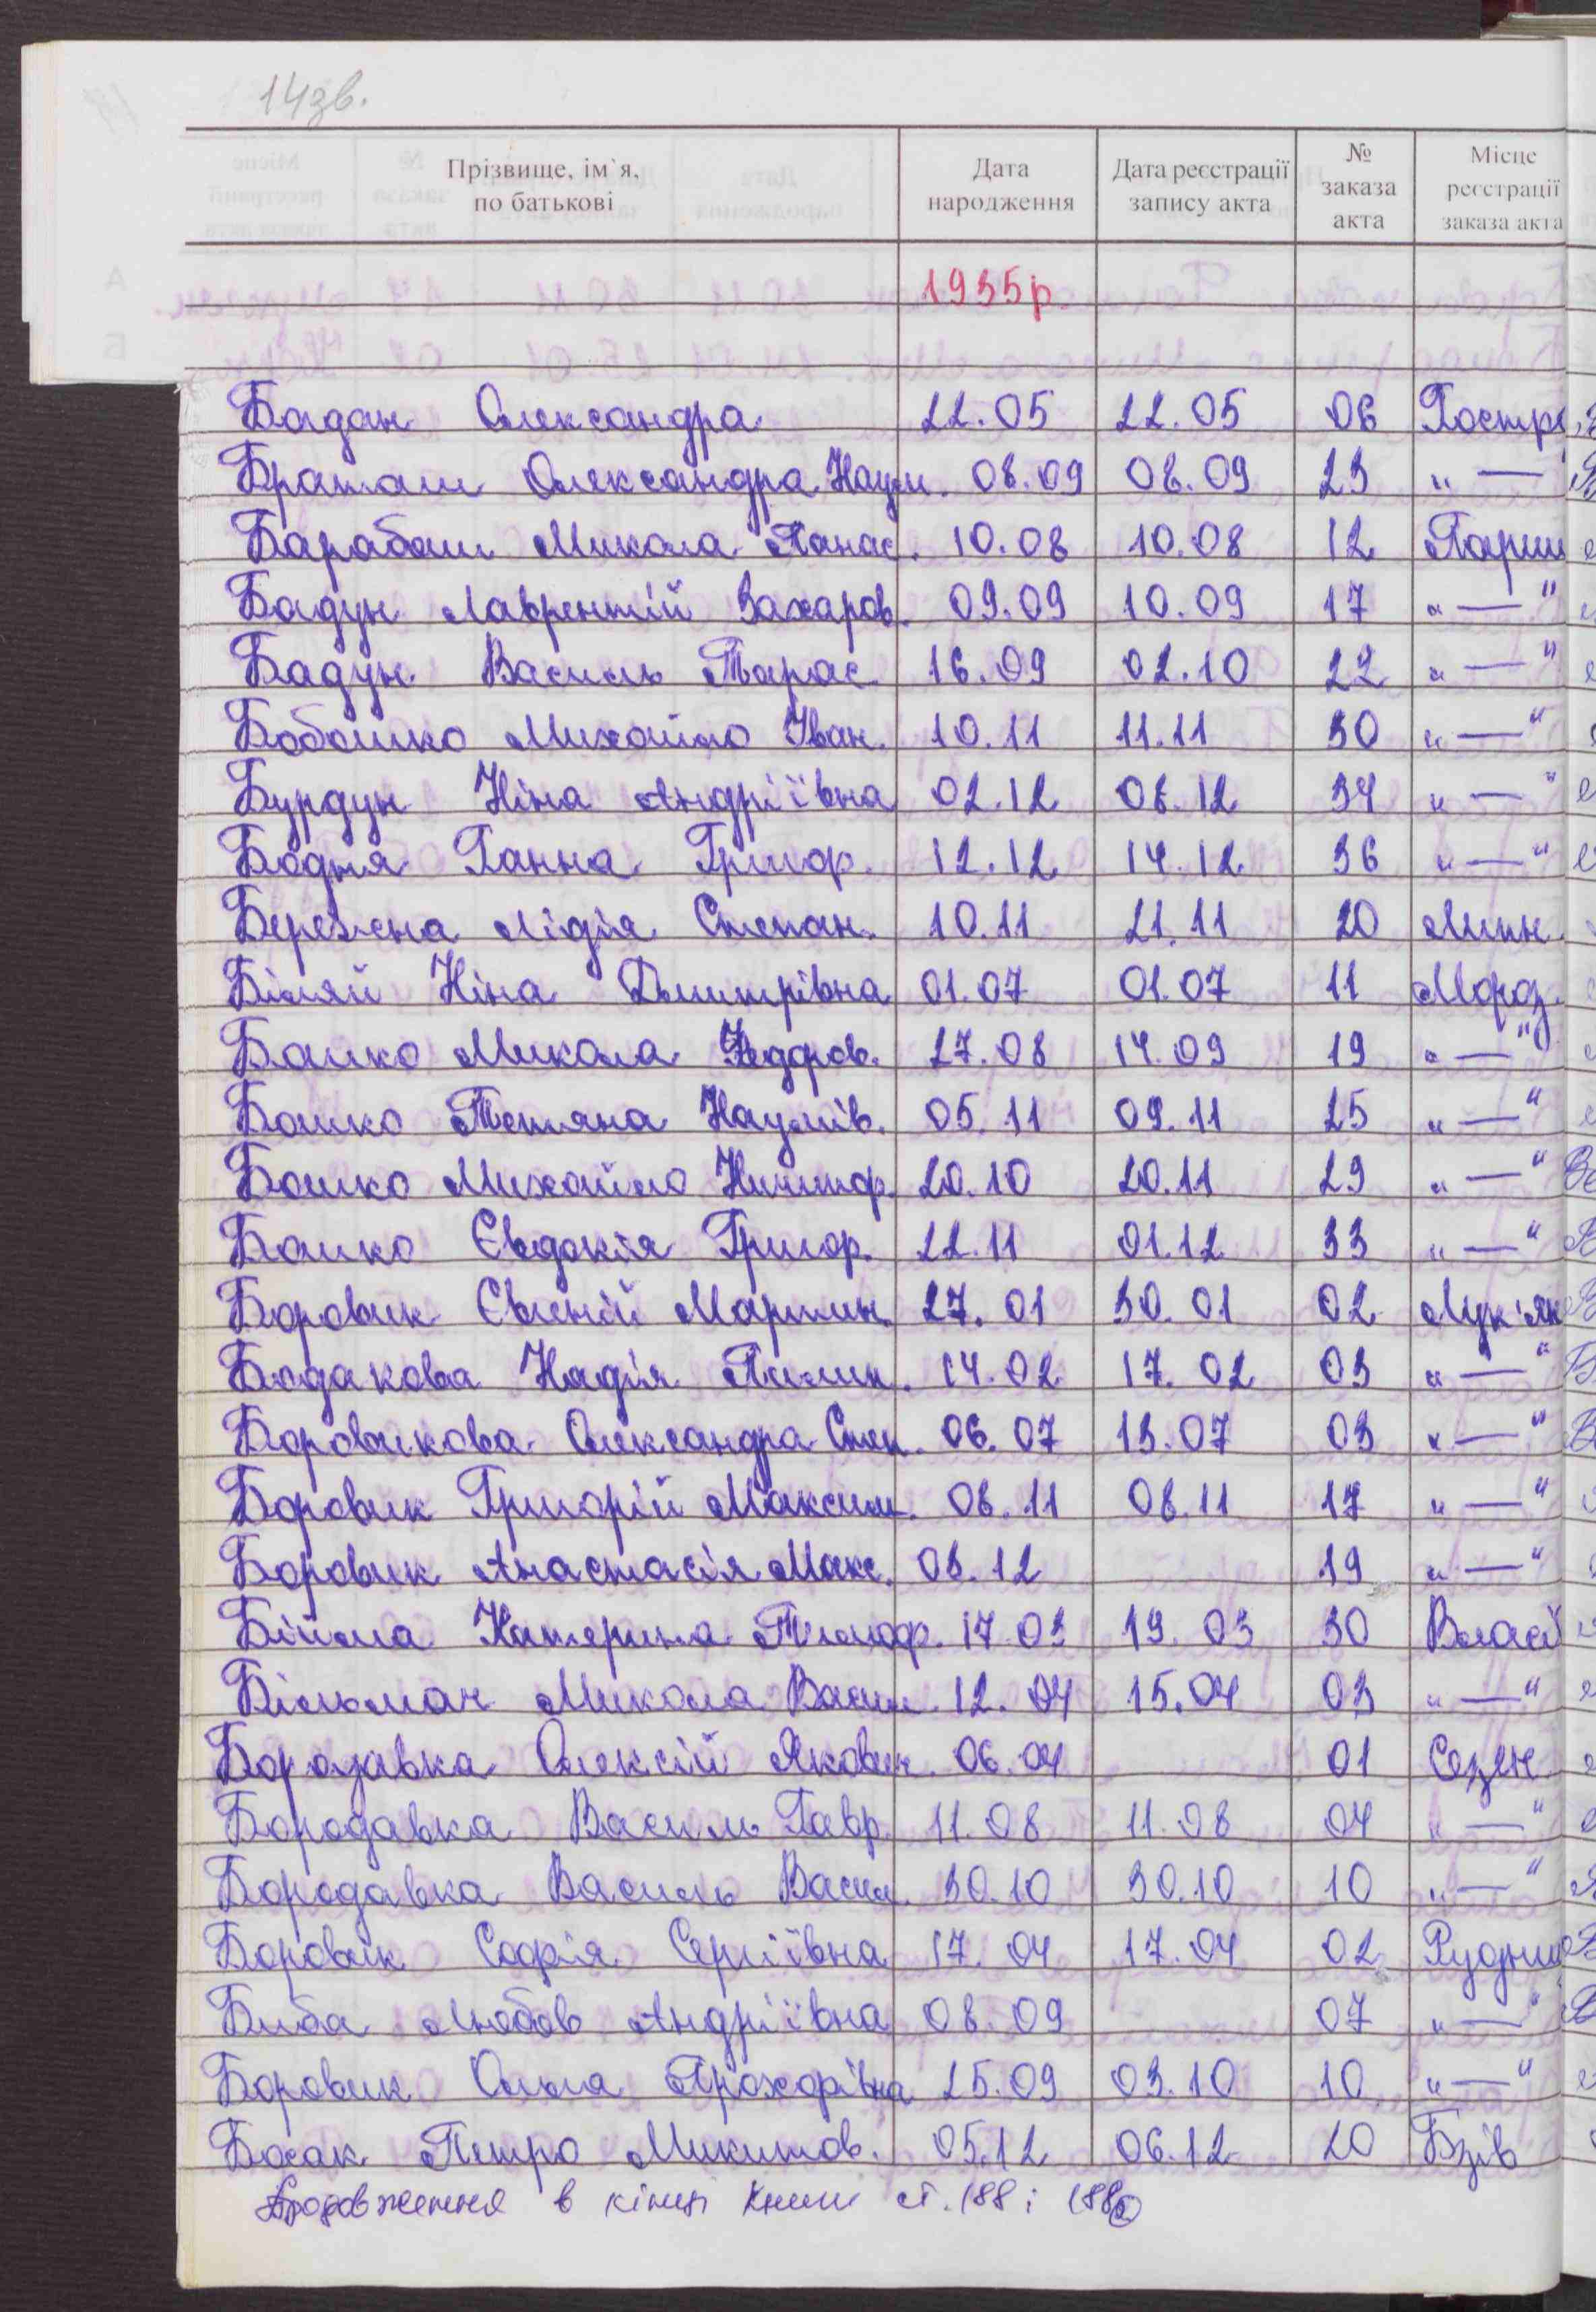 14зв.
Прізвище, ім`я, по батькові Дата народження Дата реєстрації запису акта № заказа акта Місце реєстрації заказа акта
1935р
Богдан Олександра 22.05 22.05 06 Гостр
Браташ Олександра Наум. 08.09 08.09 23 "—"
Барабаш Микола Панас. 10.08 10.08 12 Париш
Бадун Лаврентій Захаров. 09.09 10.09 17 "—"
Бадун Василь Тарас 16.09 02.10 22 "—"
Бобошко Михайло Іван. 10.11 11.11 30 "—"
Бурдун Ніна Андріївна 02.12 08.12 34 "—"
Бодня Ганна Григор. 12.12 14.12 36 "—"
Бережна Лідія Степан. 10.11 21.11 20 Мики.
Біляй Ніна Дмитрівна 01.07 01.07 11 Мороз.
Бошко Микола Федоров. 27.08 14.09 19 "—"
Бошко Тетяна Наумів. 05.11 09.11 25 "—"
Бошко Михайло Ничипор. 20.10 20.11 29 "—"
Бошко Євдокія Григор. 22.11 01.12 33 "—"
Боровик Євгеній Мартин. 27.01 30.01 02 Лук'ян
Бодакова Надія Пилип. 14.02 17.02 03 "—"
Боровикова Олександра Степ. 06.07 13.07 03 "—"
Боровик Григорій Максим. 08.11 08.11 17 "—"
Боровик Анастасія Макс. 03.12 19 "—"
Бійма Катерина Тимоф. 17.03 19.03 30 Власі
Більмач Микола Васил 12.04 15.04 03 "—"
Бородавка Олексій Якович. 06.04 01 Сезен
Бородавка Василь Гавр. 11.08 11.08 04 "—"
Бородавка Василь Васил. 30.10 30.10 10 "—"
Боровик Софія Сергіївна 17.04 17.04 02 Рудниц
Биба Любов Андріївна 08.09 07 "—"
Боровик Ольга Прохорівна 25.09 03.10 10 "—"
Босак Петро Микитов. 05.12 06.12 20 Бзів
Продовження в кінці книги ст. 188 і 188